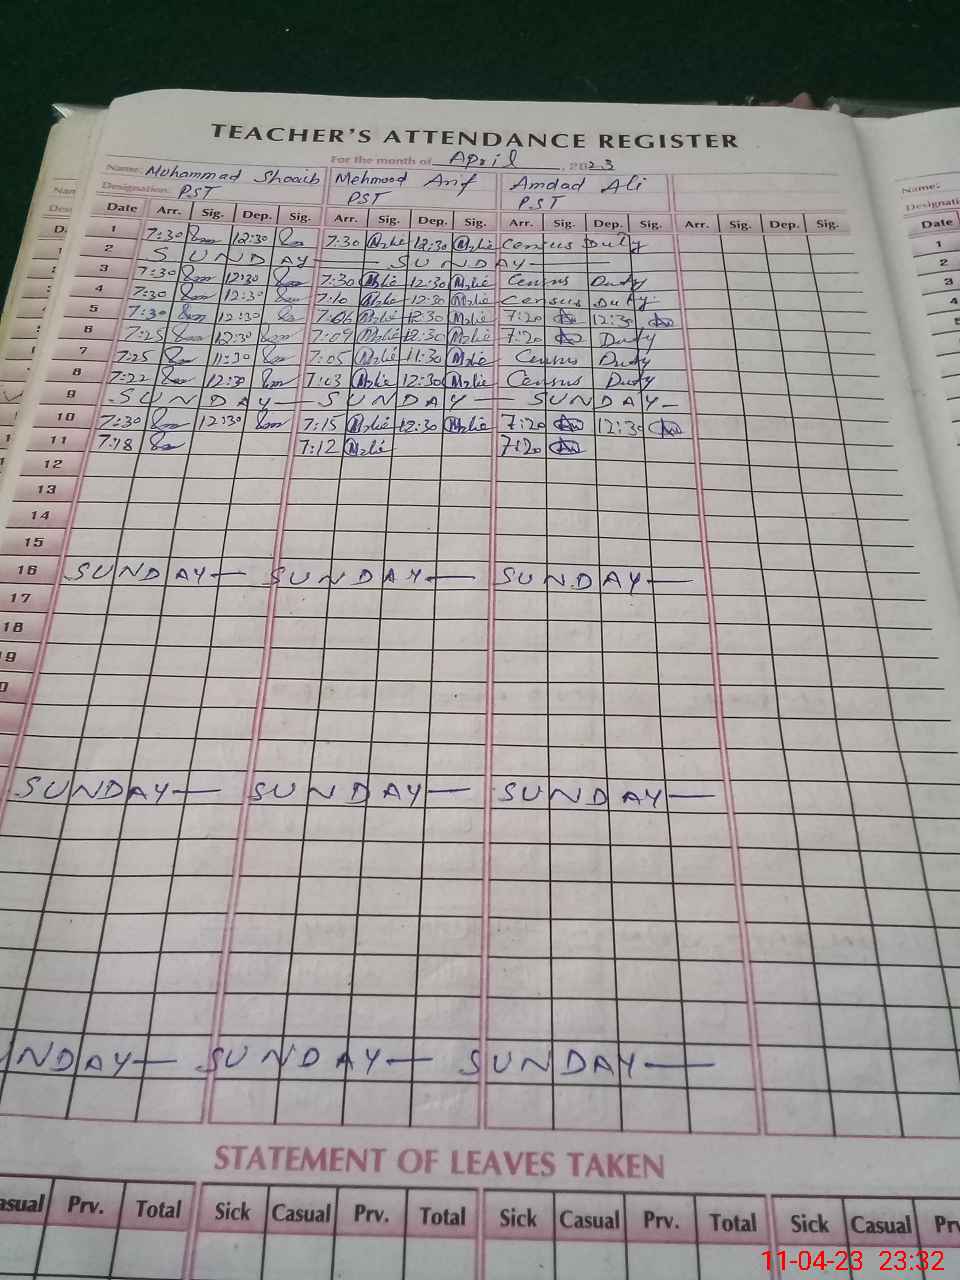 TEACHER'S ATTENDANCE REGISTER
For the month of April 2023
Name: Muhammad Shoaib Mehmood Arif Amdad Ali
Designation: PST PST PST
Date Arr. Sig. Dep. Sig. Arr. Sig. Dep. Sig. Arr. Sig. Dep. Sig. Arr. Sig. Dep. Sig.
1 7:30 12:30 7:30 12:30 Census Duty
2 SUNDAY — SUNDAY —
3 7:30 12:30 7:30 12:30 Census Duty
4 7:30 12:30 7:10 12:30 Census Duty
5 7:30 12:30 7:06 12:30 7:20 12:30
6 7:25 12:30 7:09 12:30 7:20 Duty
7 7:25 11:30 7:05 11:30 Census Duty
8 7:22 12:30 7:03 12:30 Census Duty
9 SUNDAY — SUNDAY — SUNDAY —
10 7:30 12:30 7:15 12:30 7:20 12:30
11 7:18 7:12 7:20
12
13
14
15
16 SUNDAY — SUNDAY — SUNDAY —
17
18
SUNDAY — SUNDAY — SUNDAY —
NDAY — SUNDAY — SUNDAY —
STATEMENT OF LEAVES TAKEN
asual Prv. Total Sick Casual Prv. Total Sick Casual Prv. Total Sick Casual
Name:
Date
1
2
3
4
11-04-23 23:32